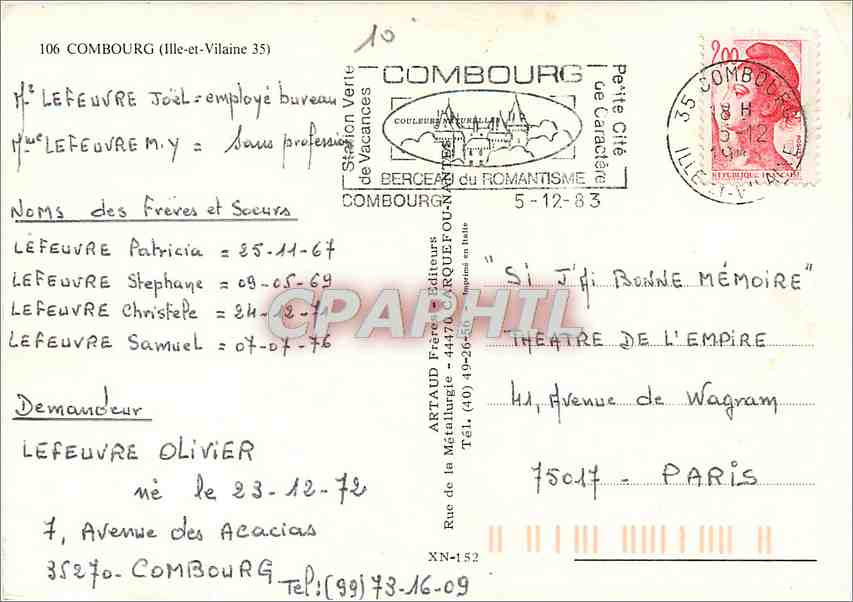 106 COMBOURG (Ille-et-Vilaine 35)
10
Mr LEFEUVRE Joël = employé bureau
Mme LEFEUVRE M.Y = Sans profession
Noms des Frères et Soeurs
LEFEUVRE Patricia = 25-11-67
LEFEUVRE Stephane = 09-05-69
LEFEUVRE Christele = 24-12-71
LEFEUVRE Samuel = 07-07-76
Demandeur
LEFEUVRE OLIVIER
né le 23-12-72
7, Avenue des Acacias
35270 - COMBOURG
Tel: (99) 73-16-09
Station Verte
de Vacances
COMBOURG
COULEURS NATURELLES
BERCEAU du ROMANTISME
Petite Cité
de Caractère
COMBOURG 5-12-83
35 COMBOURG
18 H
5-12
19
ILLE-ET-VILAINE
2,00
REPUBLIQUE FRANÇAISE
ARTAUD Frères - Editeurs
Rue de la Métallurgie - 44470 CARQUEFOU-NANTES
Tél. (40) 49-26-56 - Imprimé en Italie
XN-152
"SI J'AI BONNE MÉMOIRE"
THEATRE DE L'EMPIRE
41, Avenue de Wagram
75017 - PARIS
CPAPHIL